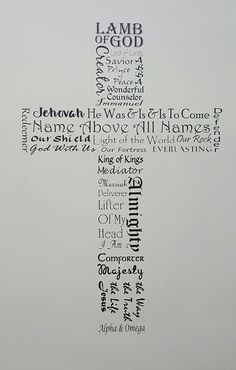 LAMB
OF GOD
Lord of Lords
Creator
Savior
Prince
of
Peace
Abba
Wonderful
Counselor
Immanuel
Redeemer
Jehovah He Was & Is & Is To Come
Name Above All Names
Our Shield Light of the World Our Rock
God With Us Our Fortress EVERLASTING
Defender
King of Kings
Mediator
Messiah
Deliverer
Lifter
Of My
Head
I Am
Almighty
Comforter
Majesty
Jesus
the Life
the Truth
the Way
Alpha & Omega